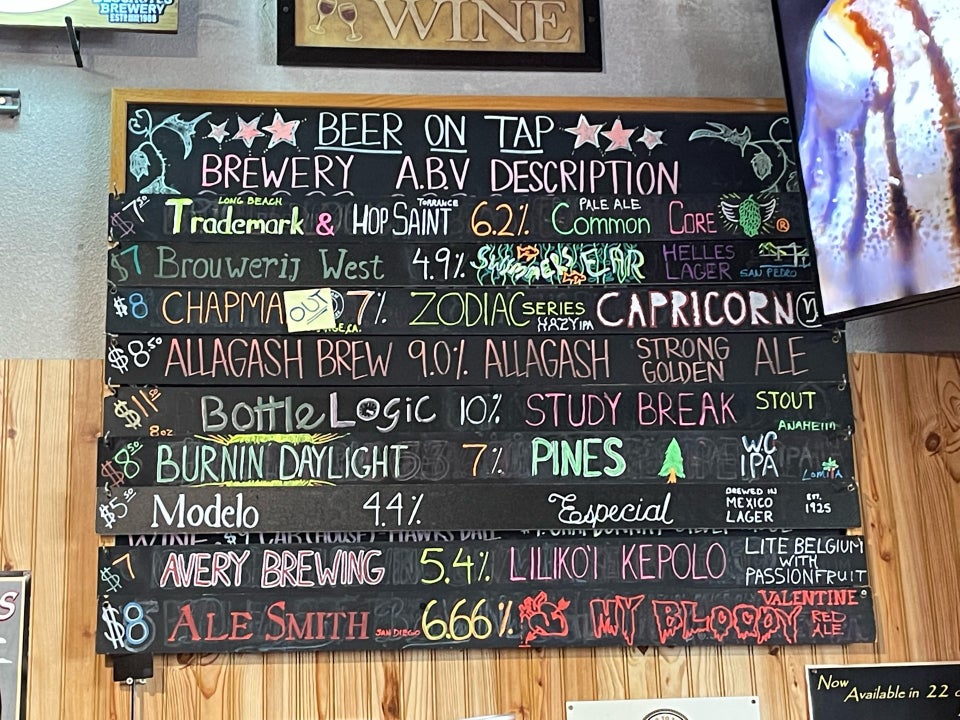 BREWERY
ESTD 1988
WINE
BEER ON TAP
BREWERY A.B.V DESCRIPTION
$7.50 Trademark LONG BEACH & HOP SAINT TORRANCE 6.2% PALE ALE Common CORE ®
$7 Brouwerij West 4.9% HELLES LAGER SAN PEDRO
$8 CHAPMA OUT 7% ZODIAC SERIES HAZY IPA CAPRICORN
$8.50 ALLAGASH BREW 9.0% ALLAGASH STRONG GOLDEN ALE
$11 8oz Bottle Logic 10% STUDY BREAK STOUT ANAHEIM
$8.50 BURNIN DAYLIGHT 7% PINES WC IPA Lomita
$5.50 Modelo 4.4% Especial BREWED IN MEXICO LAGER EST. 1925
$7 AVERY BREWING 5.4% LILIKO'I KEPOLO LITE BELGIUM WITH PASSIONFRUIT
$8 ALE SMITH SAN DIEGO 6.66% MY BLOODY VALENTINE RED ALE
Now
Available in 22